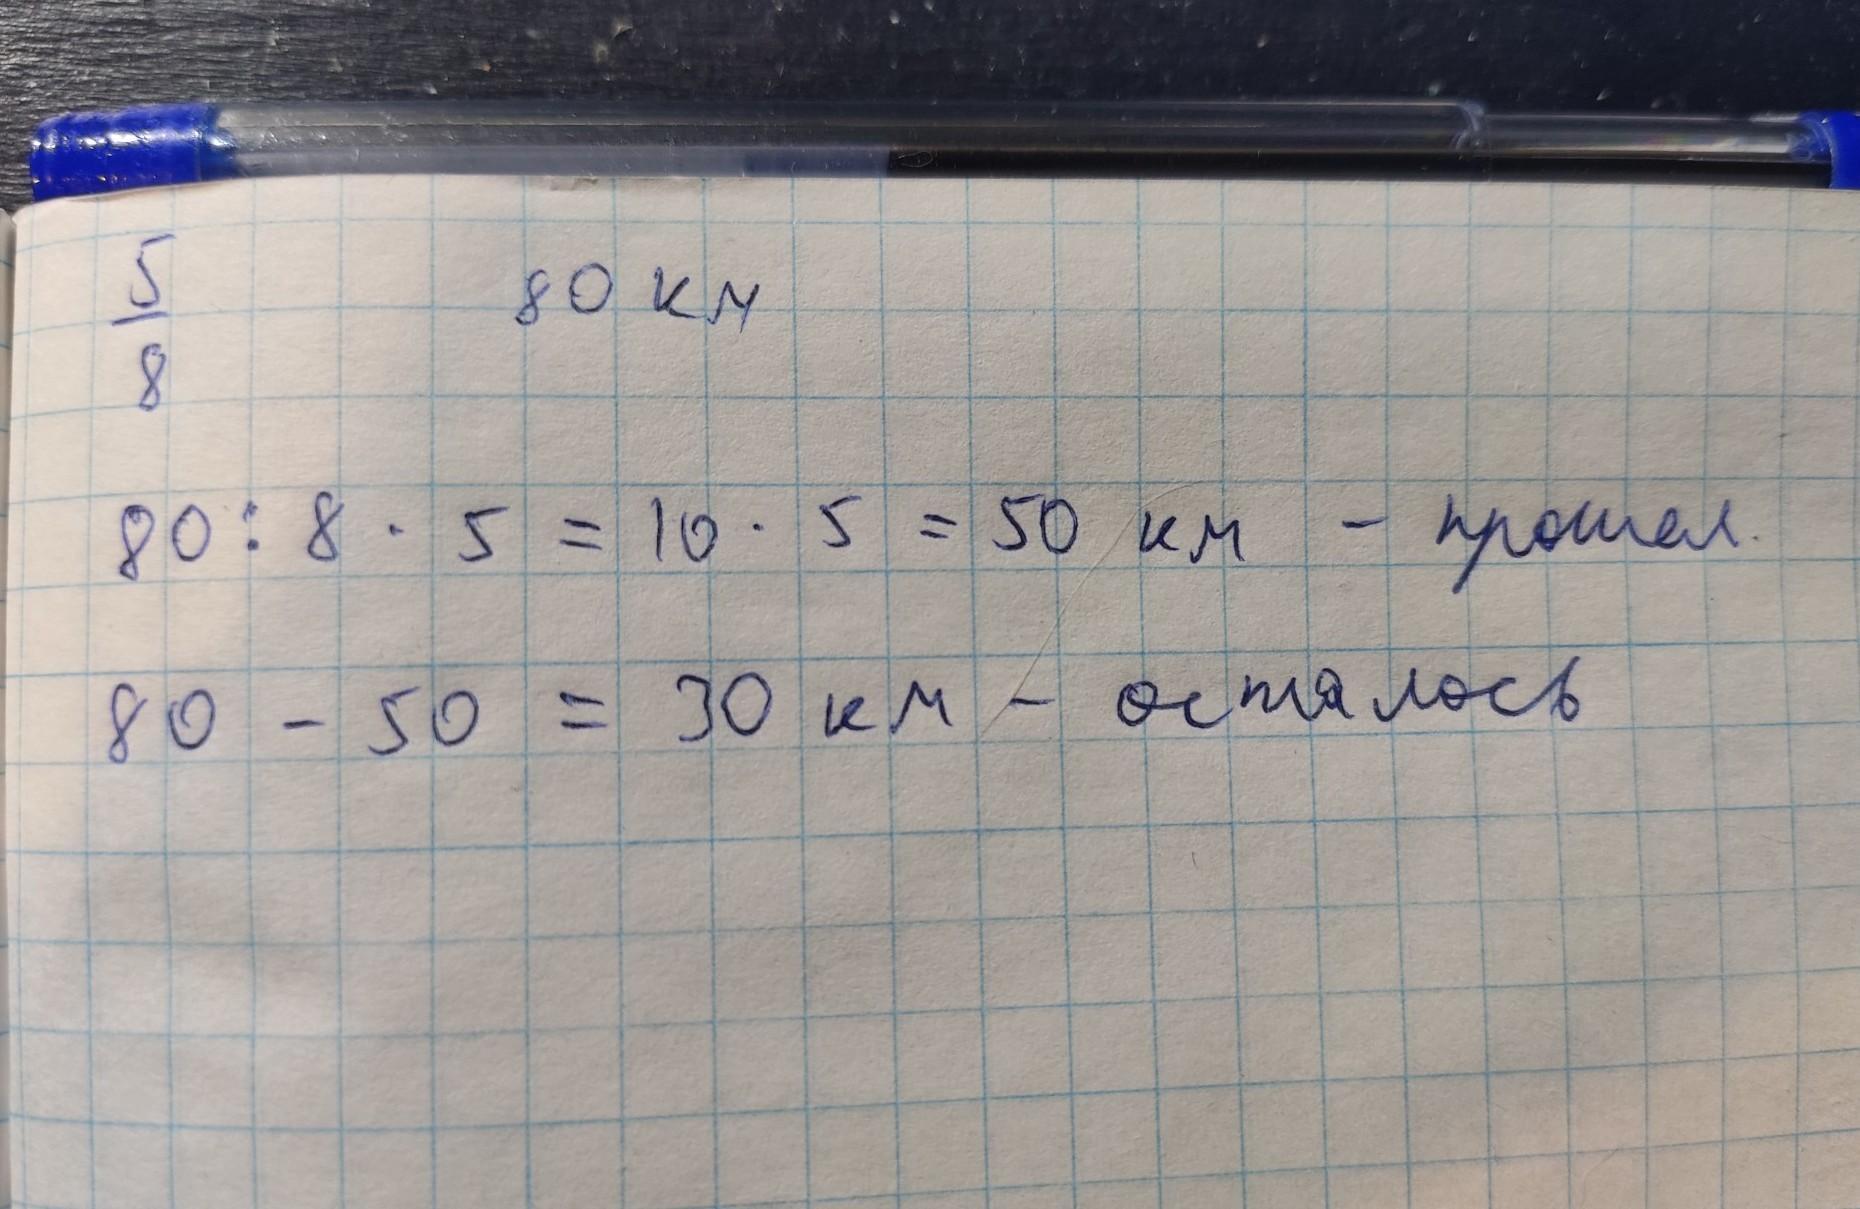 5/8 80 км
80 : 8 · 5 = 10 · 5 = 50 км - прошел.
80 - 50 = 30 км - осталось